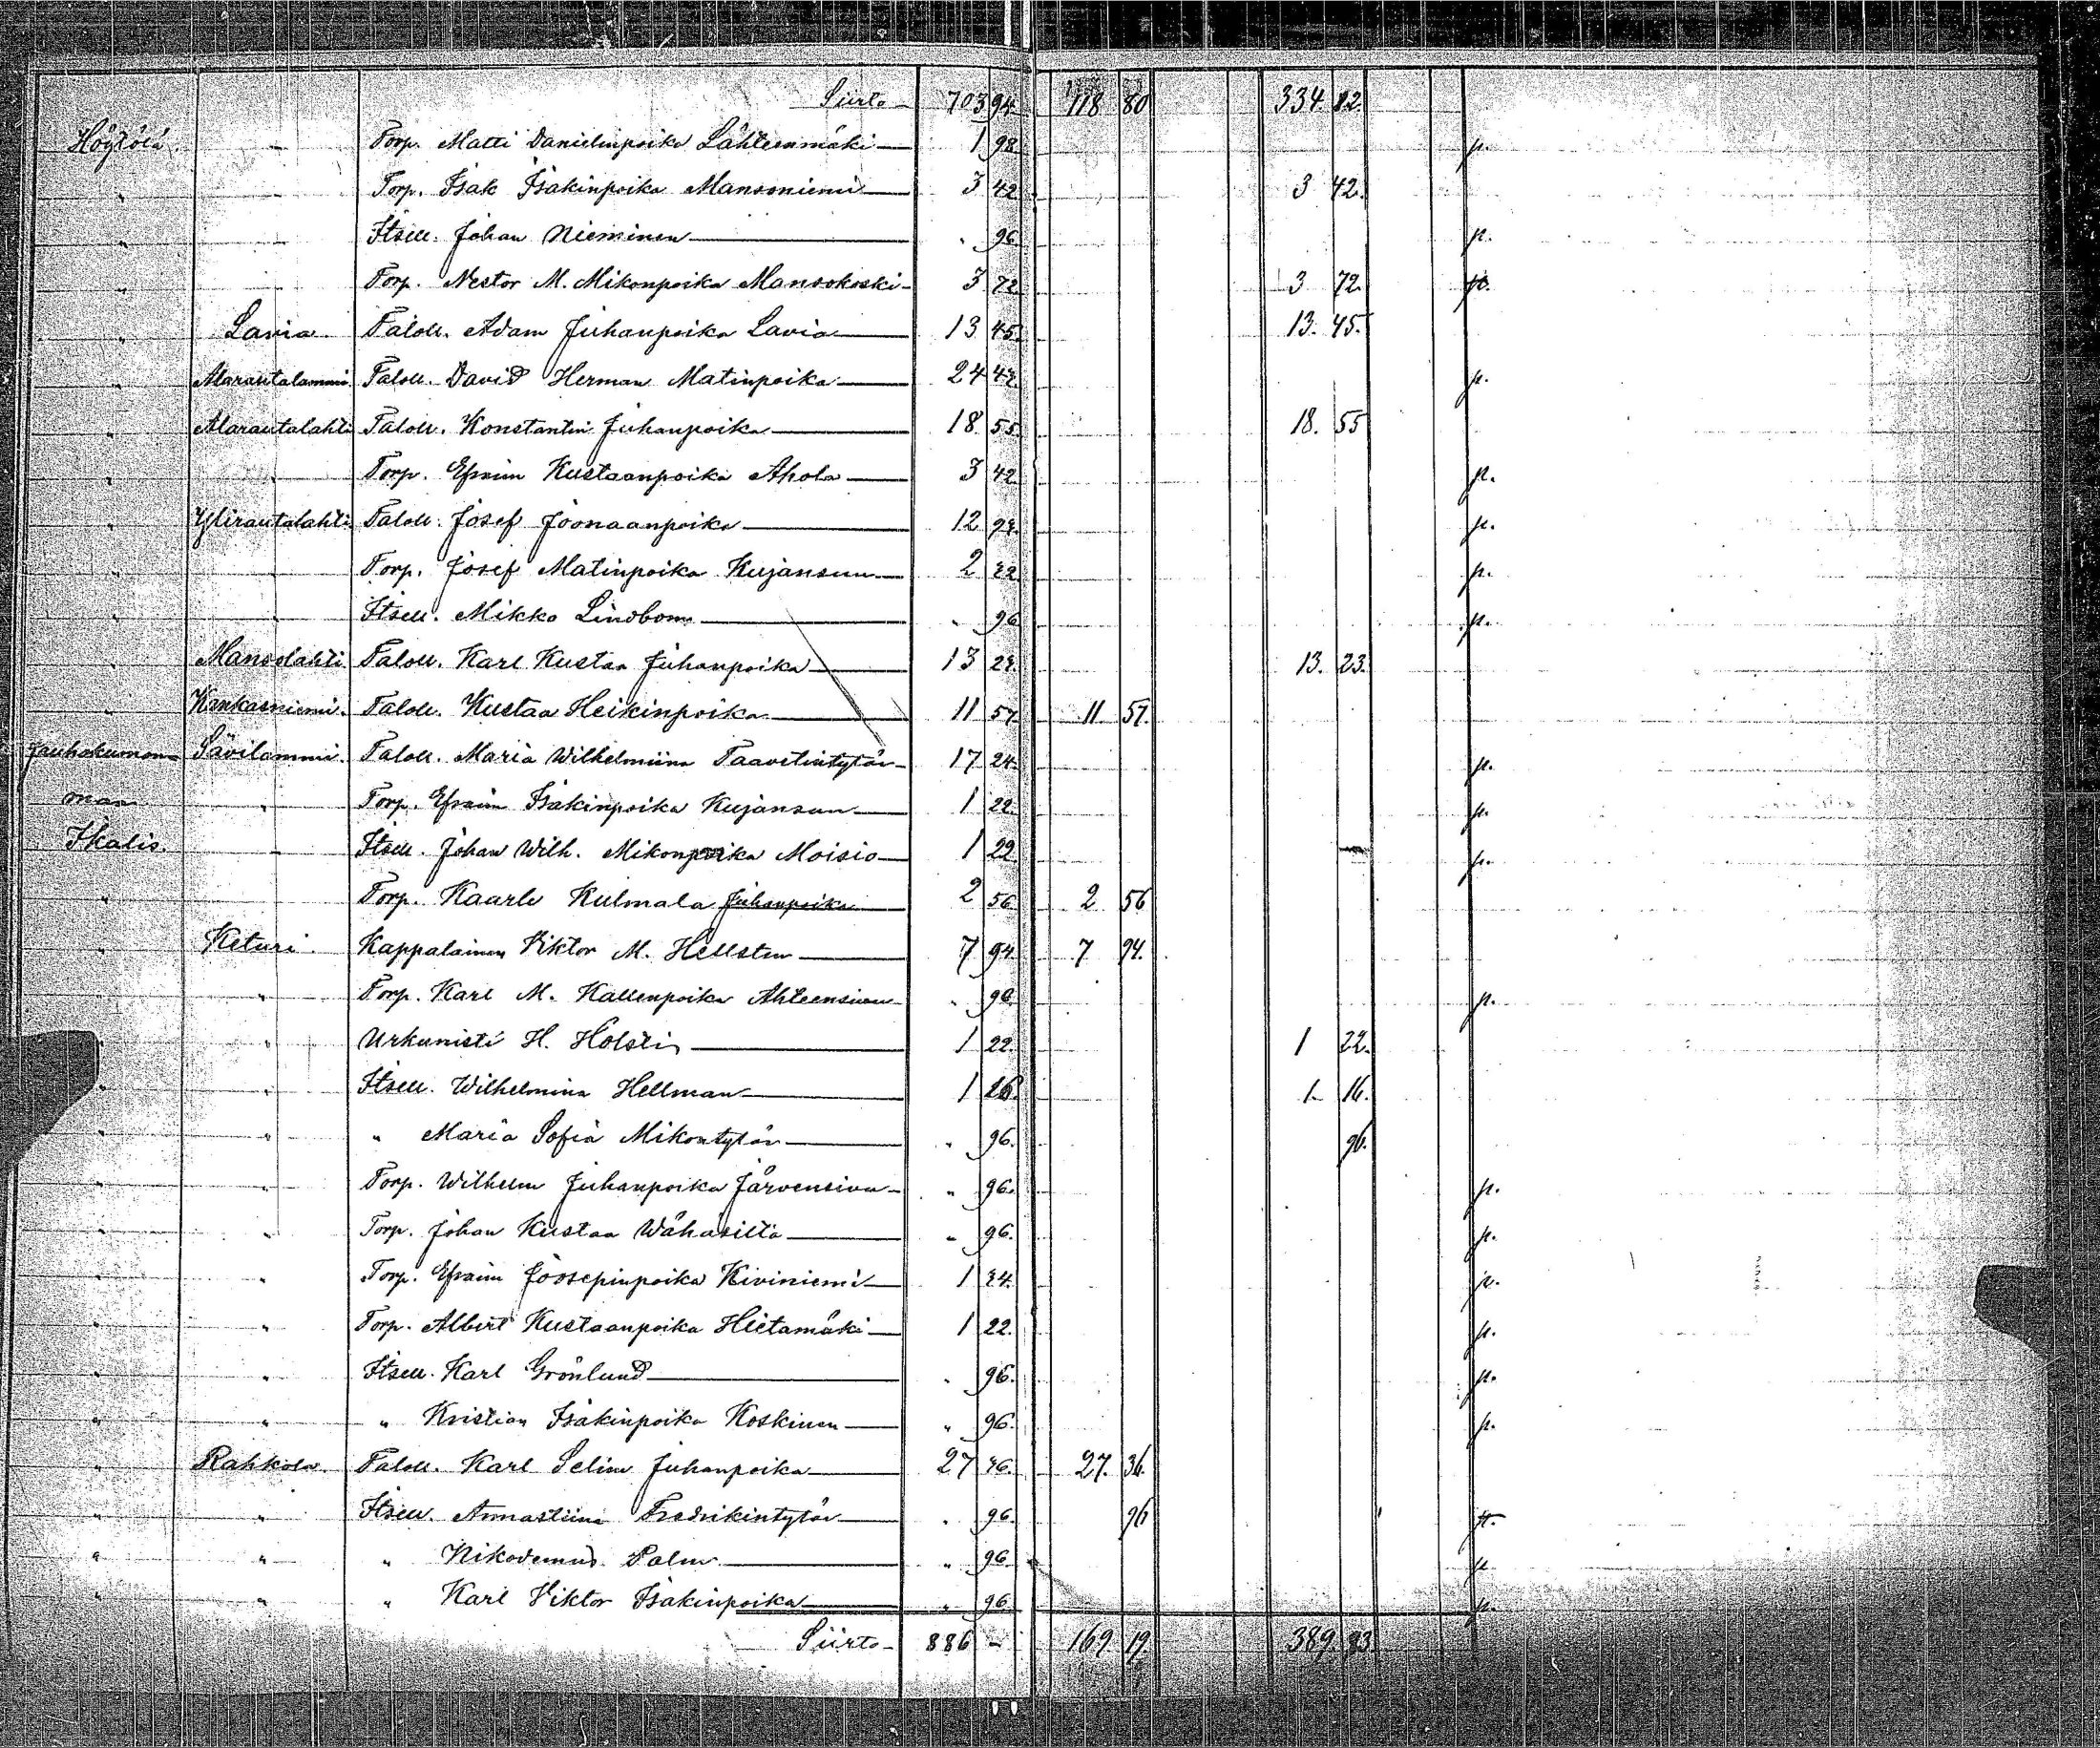 Siirto 703 94. 118 80 334. 82.
Höytölä " Torp. Matti Danielinpoika Lähteenmäki 1 98 p.
" " Torp. Isak Isakinpoika Mansoniemi 3 42 3 42.
" " Itsell. Johan Nieminen " 96 p.
" " Torp. Nestor M. Mikonpoika Mansokoski 3 72 3 72. p.
" Lavia Taloll. Adam Juhanpoika Lavia 13 45. 13. 45.
" Alarautalammi Taloll. David Herman Matinpoika 24 p.
" Alarautalahti Taloll. Konstantin Juhanpoika 18. 55. 18. 55
" " Torp. Efraim Kustaanpoika Ahola 3 42 p.
" Ylirautalahti Taloll. Josef Joonaanpoika 12 p.
" " Torp. Josef Matinpoika Kujansuu 2 22 p.
" " Itsell. Mikko Lindbom " 96 p.
" Mansolahti Taloll. Karl Kustaa Juhanpoika 13 23. 13. 23.
" Kankaeniemi. Taloll. Kustaa Heikinpoika 11 57 11 57.
Jauhokunnon Sävilammi. Taloll. Maria Wilhelmiina Taavetintytär 17 24. p.
maa " Torp. Efraim Isakinpoika Kujansuu 1 22. p.
Ikalis. " Itsell. Johan Wilh. Mikonpoika Moisio 1 22 p.
" " Torp. Kaarlo Kulmala Juhanpoika 2 56 2 56
" Keturi. Kappalainen Viktor M. Hellsten 7 94. 7 94.
" Torp. Karl M. Kallenpoika Ahteensivu " 96. p.
" Urkunisti H. Holsti 1 22. 1 22.
" " Itsell. Wilhelmina Hellman 1 16. 1 16.
" " " Maria Sofia Mikontytär " 96. 96.
" " Torp. Wilhelm Juhanpoika Järvensivu " 96. p.
" " Torp. Johan Kustaa Wähäsilta " 96. p.
" " Torp. Efraim Joosepinpoika Kiviniemi 1 24. p.
" " Torp. Albert Kustaanpoika Hietamäki 1 22. p.
" " Itsell. Karl Grönlund " 96. p.
" " " Kristian Isakinpoika Koskinen " 96. p.
" Rahkola Taloll. Karl Selim Juhanpoika 27 36. 27. 36.
" " Itsell. Annastiina Fredrikintytär " 96. 96 p.
" " " Nikodemus Palm " 96. p.
" " " Karl Viktor Isakinpoika " 96 p.
Siirto 886 - 169 19. 389. 83.